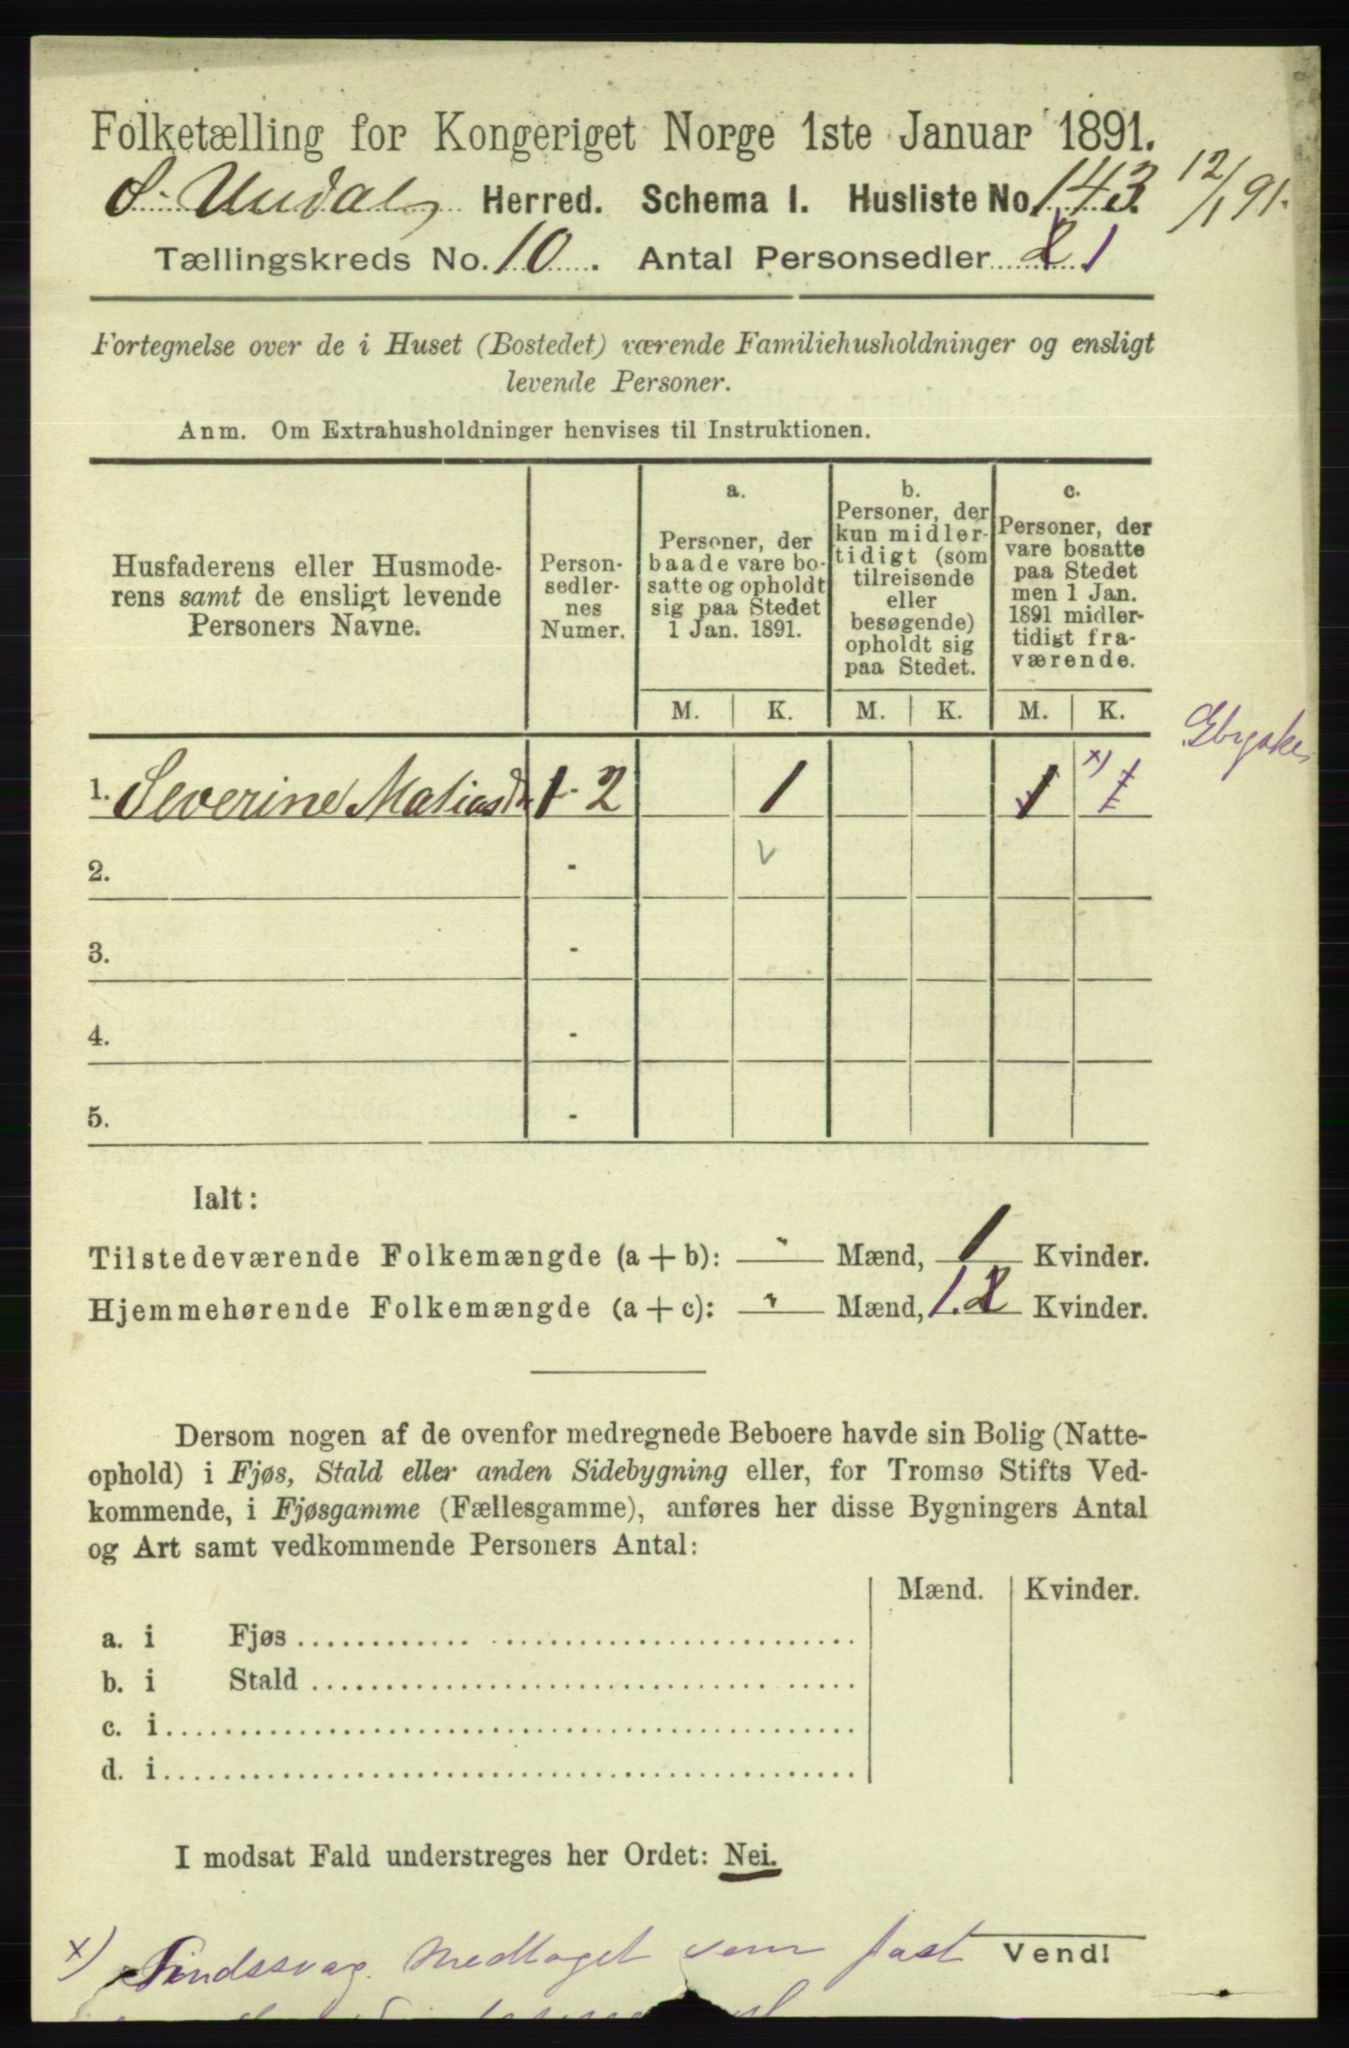 Folketælling for Kongeriget Norge 1ste Januar 1891.
S. Undals Herred. Schema I. Husliste No. 143. 12/1 91.
Tællingskreds No. 10. Antal Personsedler 2 1
Fortegnelse over de i Huset (Bostedet) værende Familiehusholdninger og ensligt
levende Personer.
Anm. Om Extrahusholdninger henvises til Instruktionen.
Husfaderens eller Husmode-
rens samt de ensligt levende
Personers Navne.
Person-
sedler-
nes
Numer.
a.
Personer, der
baade vare bo-
satte og opholdt
sig paa Stedet
1 Jan. 1891.
b.
Personer, der
kun midler-
tidigt (som
tilreisende
eller
besøgende)
opholdt sig
paa Stedet.
c.
Personer, der
vare bosatte
paa Stedet
men 1 Jan.
1891 midler-
tidigt fra-
værende.
M. K. M. K. M. K.
1. Severine 1 - 2 1 1 x) 1
2. -
3. -
4. -
5. -
Ialt:
Tilstedeværende Folkemængde (a + b): - Mænd, 1 Kvinder.
Hjemmehørende Folkemængde (a + c): - Mænd, 1. 2 Kvinder.
Dersom nogen af de ovenfor medregnede Beboere havde sin Bolig (Natte-
ophold) i Fjøs, Stald eller anden Sidebygning eller, for Tromsø Stifts Ved-
kommende, i Fjøsgamme (Fællesgamme), anføres her disse Bygningers Antal
og Art samt vedkommende Personers Antal:
Mænd. Kvinder.
a. i Fjøs
b. i Stald
c. i
d. i
I modsat Fald understreges her Ordet: Nei.
x) Sindssvag. Medtaget som fast
Vend!